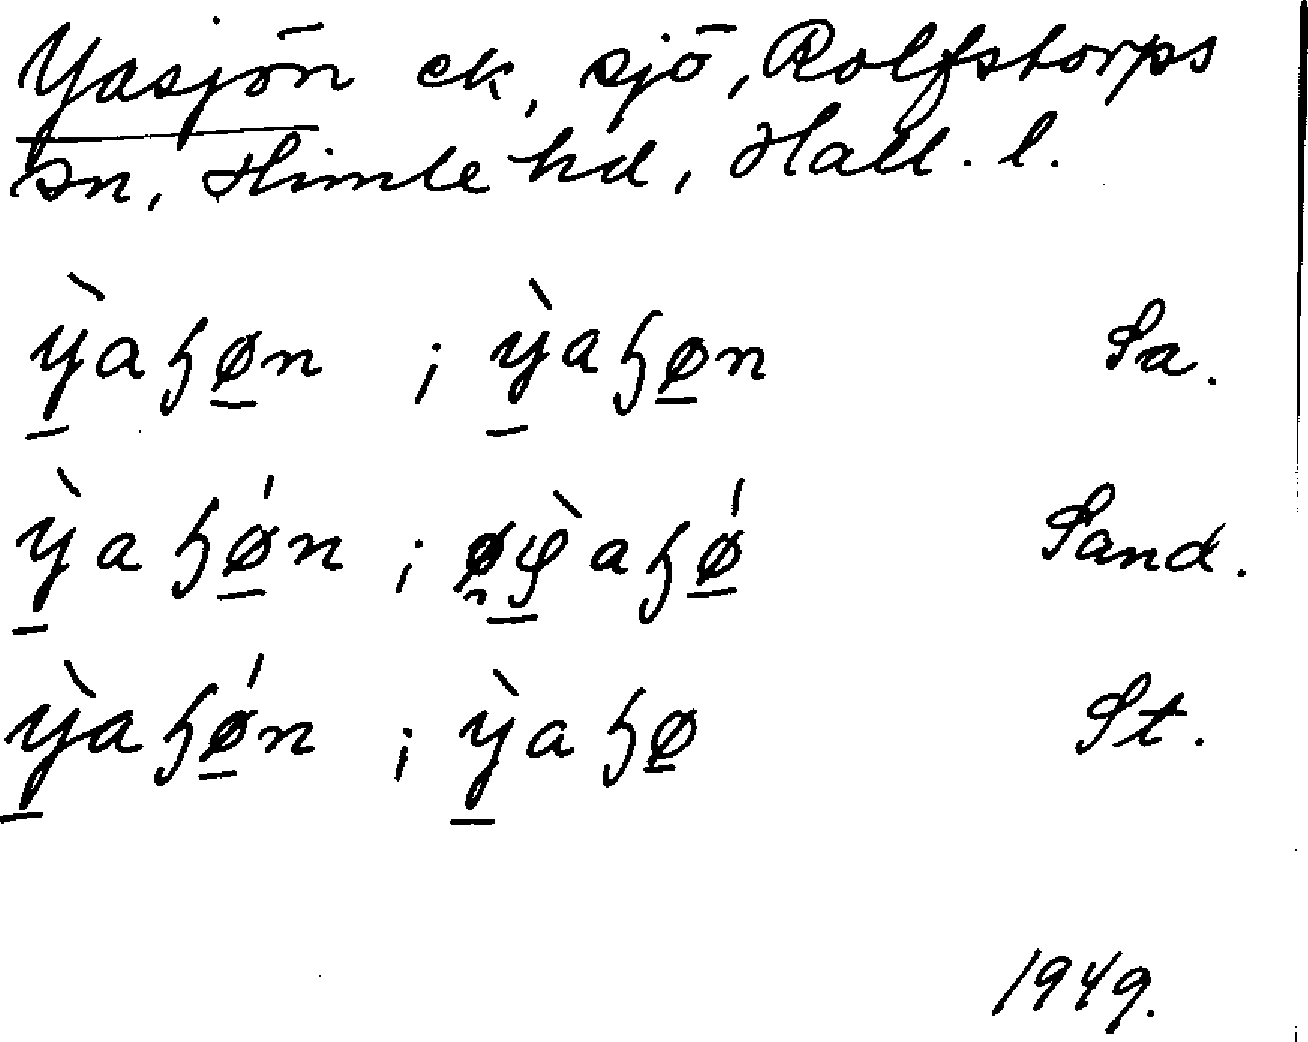 Yasjön ek, sjö, Rolfstorps
sn, Himle hd, Hall. l.
ỳ̲aɧø̲n ; ỳ̲aɧø̲n Sa.
ỳ̲aɧǿ̲n ; ỳ̲aɧǿ̲ Sand.
ỳ̲aɧǿ̲n ; ỳ̲aɧø̲ St.
1949.